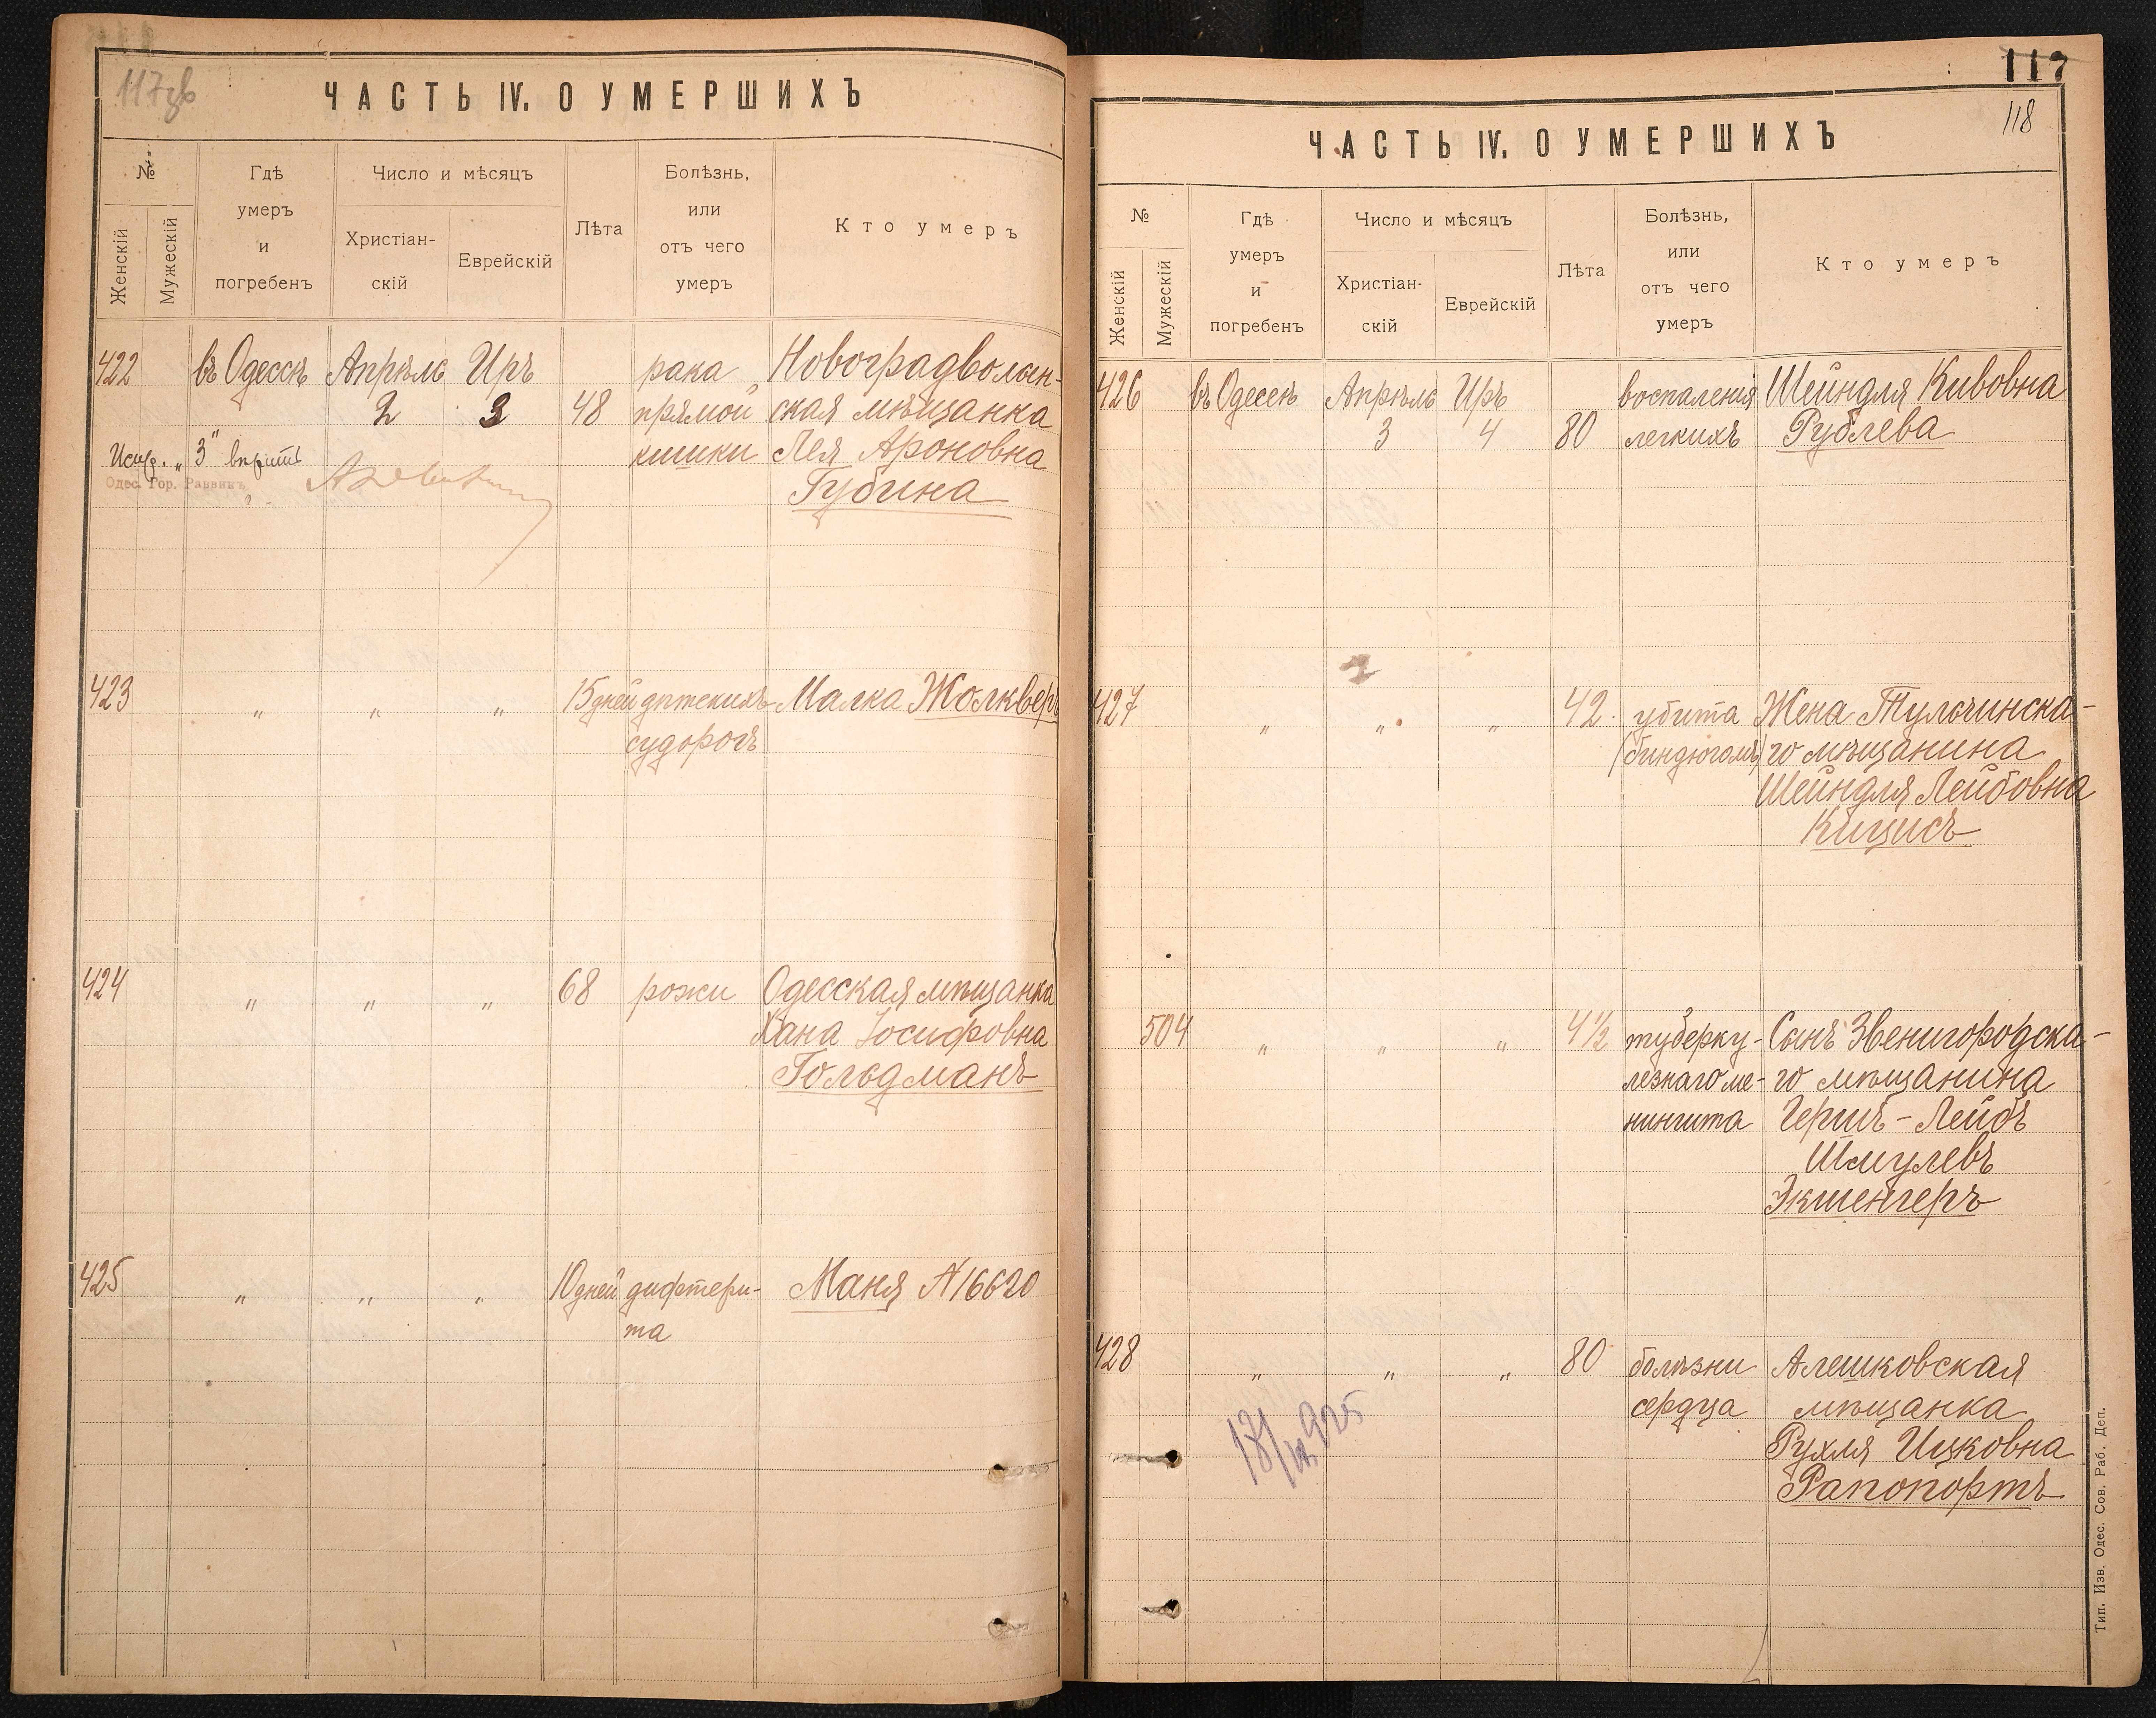 117об
ЧАСТЬ IV. О УМЕРШИХЪ
№
Женскій
Мужескій
Гдѣ
умеръ
и
погребенъ
Число и мѣсяцъ
Христіан-
скій
Еврейскій
Лѣта
Болѣзнь,
или
отъ чего
умеръ
Кто умеръ
422 въ Одессѣ Апрѣль Иръ рака Новоградволын-
2 3 48 прямой ская мѣщанка
кишки Лея Ароновна
Губина
Испр. „3" вѣрить
Одес. Гор. Раввинъ
423 „ „ „ 15 дней дѣтскихъ Малка Жолквер
судорогъ
424 „ „ „ 68 рожи Одесская мѣщанка
Хана Іосифовна
Гольдманъ
425 „ „ „ 10 дней дифтери- Маня №16620
та
117
118
ЧАСТЬ IV. О УМЕРШИХЪ
№
Женскій
Мужескій
Гдѣ
умеръ
и
погребенъ
Число и мѣсяцъ
Христіан-
скій
Еврейскій
Лѣта
Болѣзнь,
или
отъ чего
умеръ
Кто умеръ
426 въ Одессѣ Апрѣль Иръ воспаленія Шейндля Кивовна
3 4 80 легкихъ Рублева
427 „ „ „ 42 убита Жена Тульчинска-
(биндюгомъ) го мѣщанина
Шейндля Лейбовна
Кицисъ
504 „ „ „ 4½ туберку- Сынъ Звенигородска-
лезнаго ме- го мѣщанина
нингита Гершъ-Лейбъ
Шмулевъ
Экшенгеръ
428 „ „ „ 80 болѣзни Алешковская
сердца мѣщанка
Рухля Ицковна
Рапопортъ
Тип. Изв. Одес. Сов. Раб. Деп.